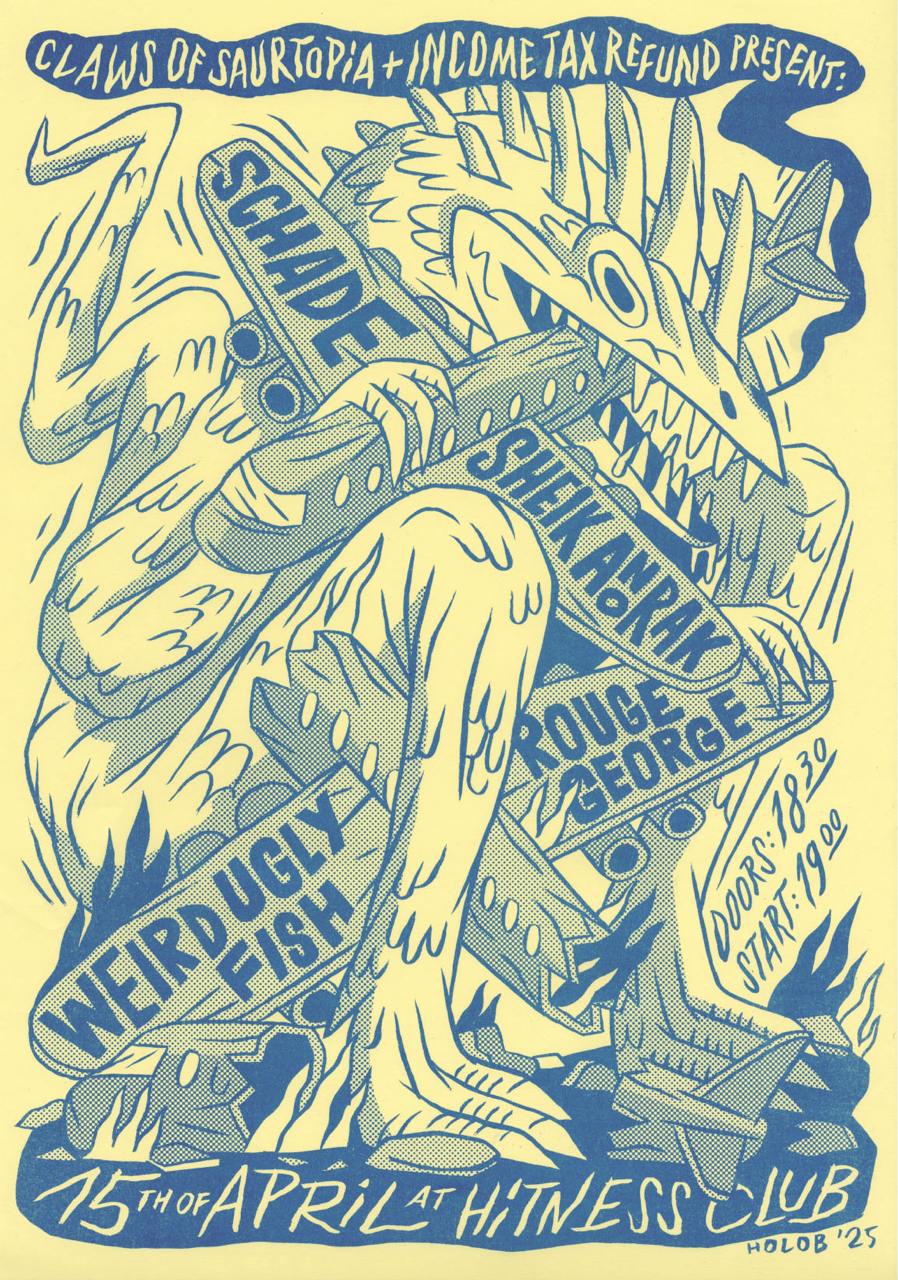 CLAWS OF SAURTOPiA + INCOME TAX REFUND PRESENT:
SCHADE
SHEIK ANORAK
ROUGE
GEORGE
WEIRD UGLY
FISH
DOORS: 18 30
START: 19 00
15TH OF APRiL AT HiTNESS CLUB
HOLOB '25